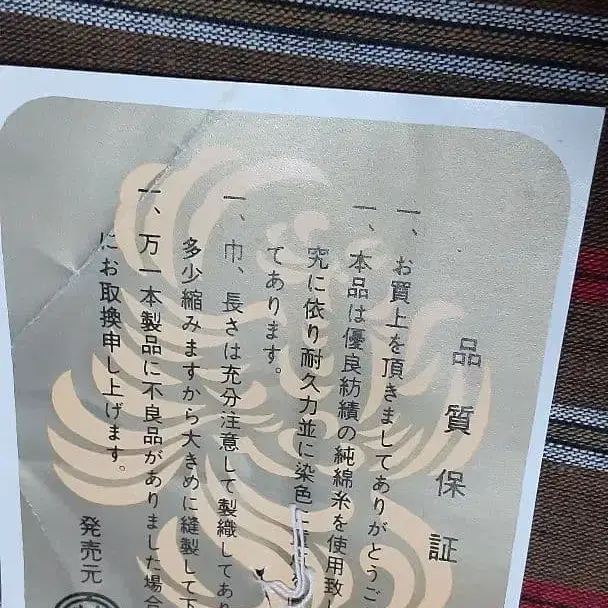 品質保証
一、お買上を頂きましてありがとうご
一、本品は優良紡績の純綿糸を使用致し
究に依り耐久力並に染色
てあります。
一、巾、長さは充分注意して製織してあり
多少縮みますから大きめに縫製して下
一、万一本製品に不良品がありました場合
にお取換申し上げます。
発売元